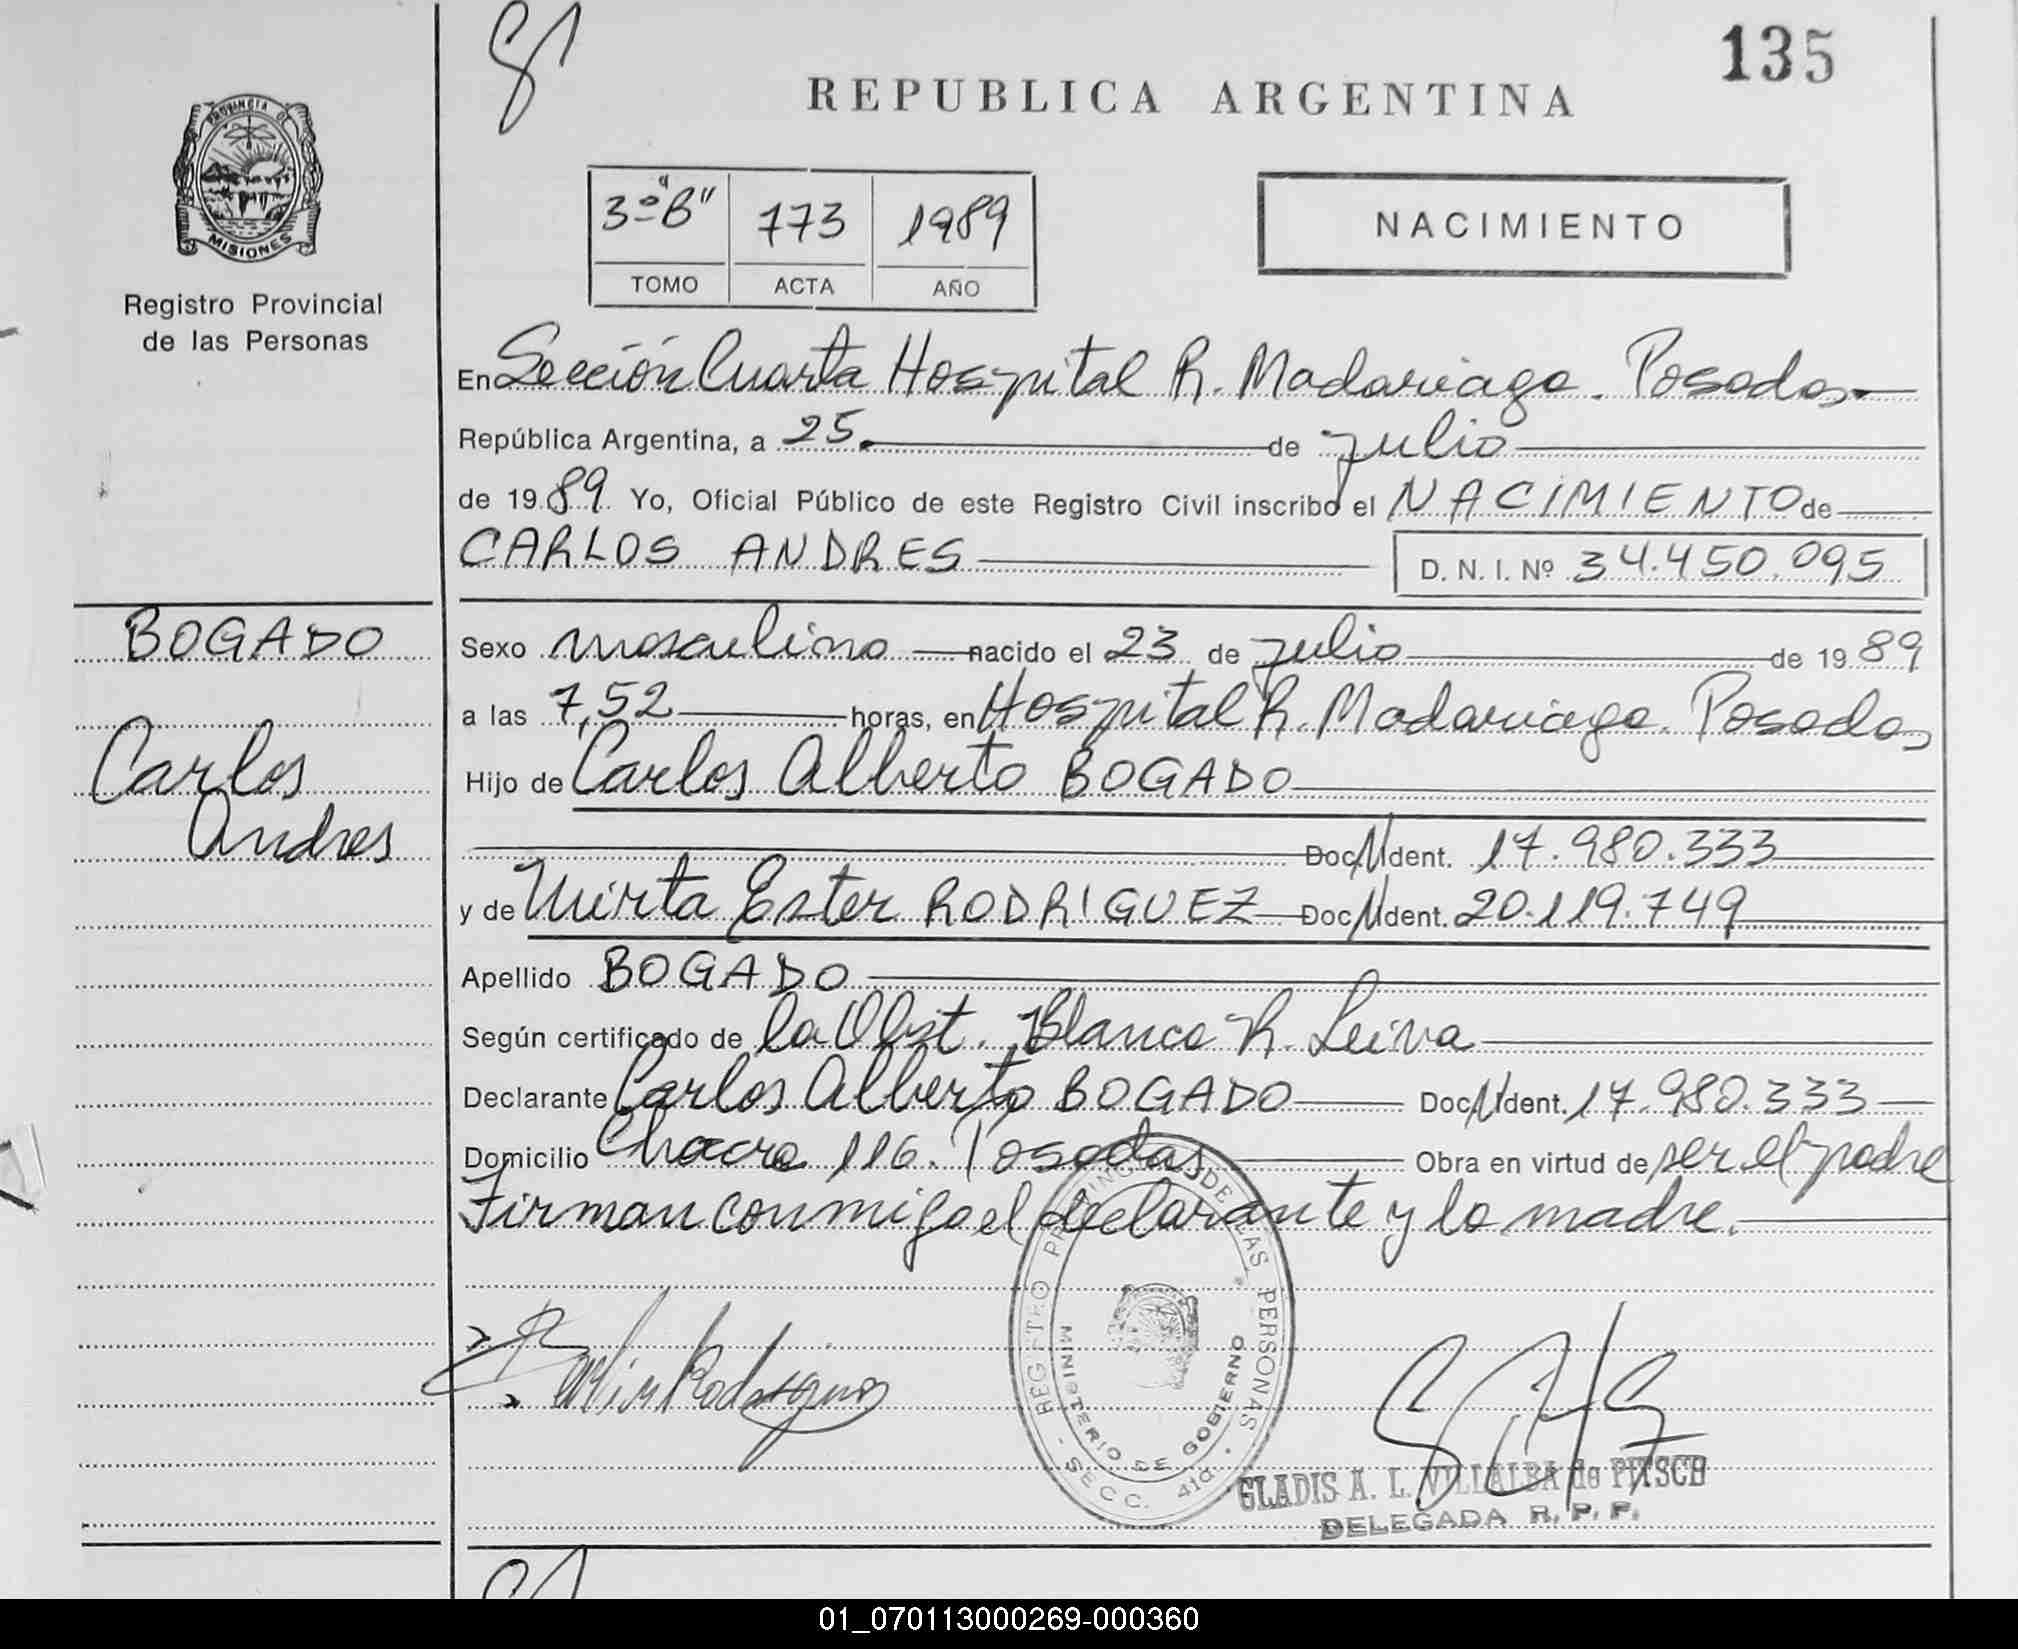 135
REPUBLICA ARGENTINA
PROVINCIA DE
MISIONES
Registro Provincial
de las Personas
3º "B" 773 1989
TOMO ACTA AÑO
NACIMIENTO
En Sección Cuarta Hospital R. Madariaga. Posadas
República Argentina, a 25 de julio
de 1989 Yo, Oficial Público de este Registro Civil inscribo el NACIMIENTO de
CARLOS ANDRES D. N. I. Nº 34.450.095
BOGADO
Carlos
Andres
Sexo masculino nacido el 23 de julio de 1989
a las 7,52 horas, en Hospital R. Madariaga. Posadas
Hijo de Carlos Alberto BOGADO
Doc. Ident. 17.980.333
y de Mirta Ester RODRIGUEZ Doc. Ident. 20.119.749
Apellido BOGADO
Según certificado de la Obst. Blanca R. Leiva
Declarante Carlos Alberto BOGADO Doc. Ident. 17.980.333
Domicilio Chacra 116. Posadas Obra en virtud de ser el padre
Firman conmigo el declarante y la madre.
REGISTRO PROVINCIAL DE LAS PERSONAS
MINISTERIO DE GOBIERNO
SECC. 4ta.
GLADIS A. L. VILLALBA de PITSCH
DELEGADA R. P. P.
01_070113000269-000360